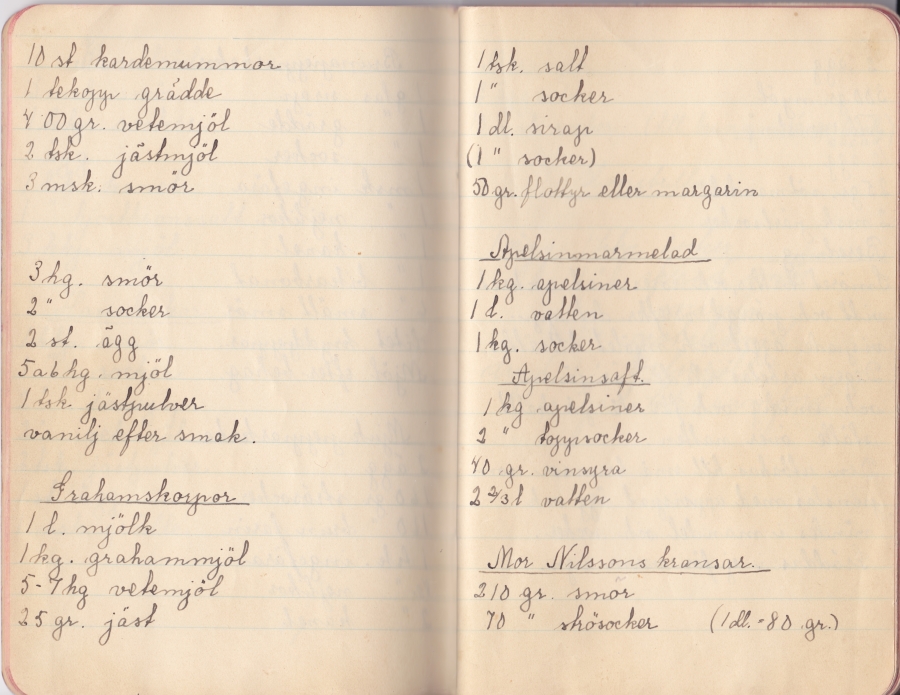 10 st kardemummor
1 tekopp grädde
400 gr. vetemjöl
2 tsk. jästmjöl
3 msk. smör
3 hg. smör
2 " socker
2 st. ägg
5 a 6 hg. mjöl
1 tsk jästpulver
vanilj efter smak.
Grahamskorpor
1 l. mjölk
1 kg. grahammjöl
5-7 hg vetemjöl
25 gr. jäst
1 tsk. salt
1 " socker
1 dl. sirap
(1 " socker)
50 gr. flottyr eller margarin
Apelsinmarmelad
1 kg. apelsiner
1 l. vatten
1 kg. socker
Apelsinsaft.
1 kg apelsiner
2 " toppsocker
40 gr. vinsyra
2 2/3 l vatten
Mor Nilssons kransar.
210 gr. smör
70 " strösocker (1 dl. = 80 gr.)